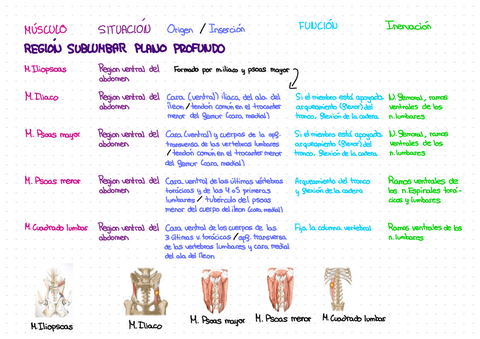 MÚSCULO SITUACIÓN Origen / Inserción FUNCIÓN Inervación
REGIÓN SUBLUMBAR PLANO PROFUNDO
M. Iliopsoas Region ventral del abdomen Formado por m. iliaco y psoas mayor
M. Iliaco Region ventral del Cara (ventral) iliaca del ala del Si el miembro está apoyado N. Femoral, ramos
abdomen Ileon / tendón común en el trocanter arqueamiento (flexor) del ventrales de los
menor del femur (cara medial) tronco. Flexión de la cadera n. lumbares
M. Psoas mayor Region ventral del Cara (ventral) y cuerpos de la apf. Si el miembro está apoyado N. Femoral, ramos
abdomen transversa de las vertebras lumbares arqueamiento (flexor) del ventrales de los
/ tendón común en el trocanter menor tronco. Flexión de la cadera n. lumbares
del femur (cara medial)
M. Psoas menor Region ventral del Cara ventral de las últimas vértebras Arqueamiento del tronco Ramos ventrales de
abdomen torácicas y de las 4 o 5 primeras y flexión de la cadera los n. Espinales torá-
lumbares / tubérculo del psoas cicos y lumbares
menor del cuerpo del ileon (cara medial)
M. Cuadrado lumbar Region ventral del Cara ventral de los cuerpos de las Fija la columna vertebral Ramos ventrales de los
abdomen 3 últimas v. torácicas / apf. transversa n. lumbares
de las vertebras lumbares y cara medial
del ala del Ileon
M. Iliopsoas M. Iliaco M. Psoas mayor M. Psoas menor M. Cuadrado lumbar